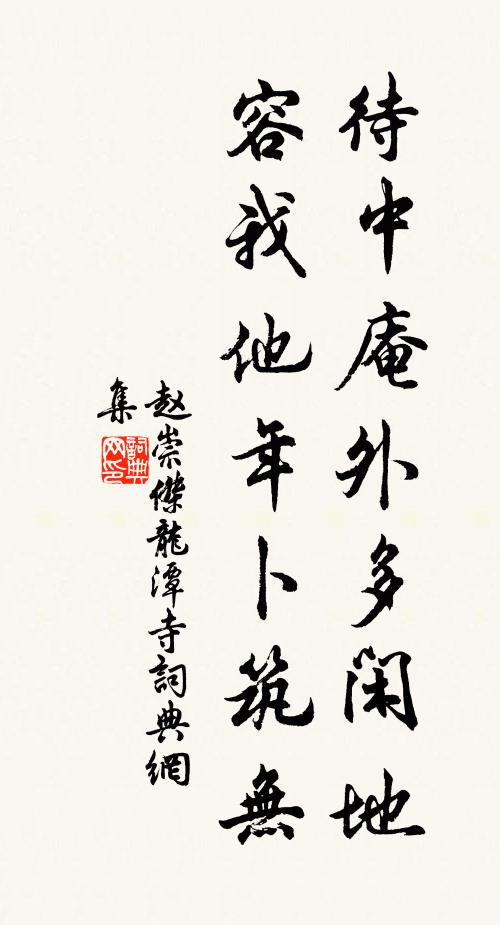 待中庵外多閑地
容我他年卜筑無
赵崇傑龍潭寺詞典網
集
詞典网印